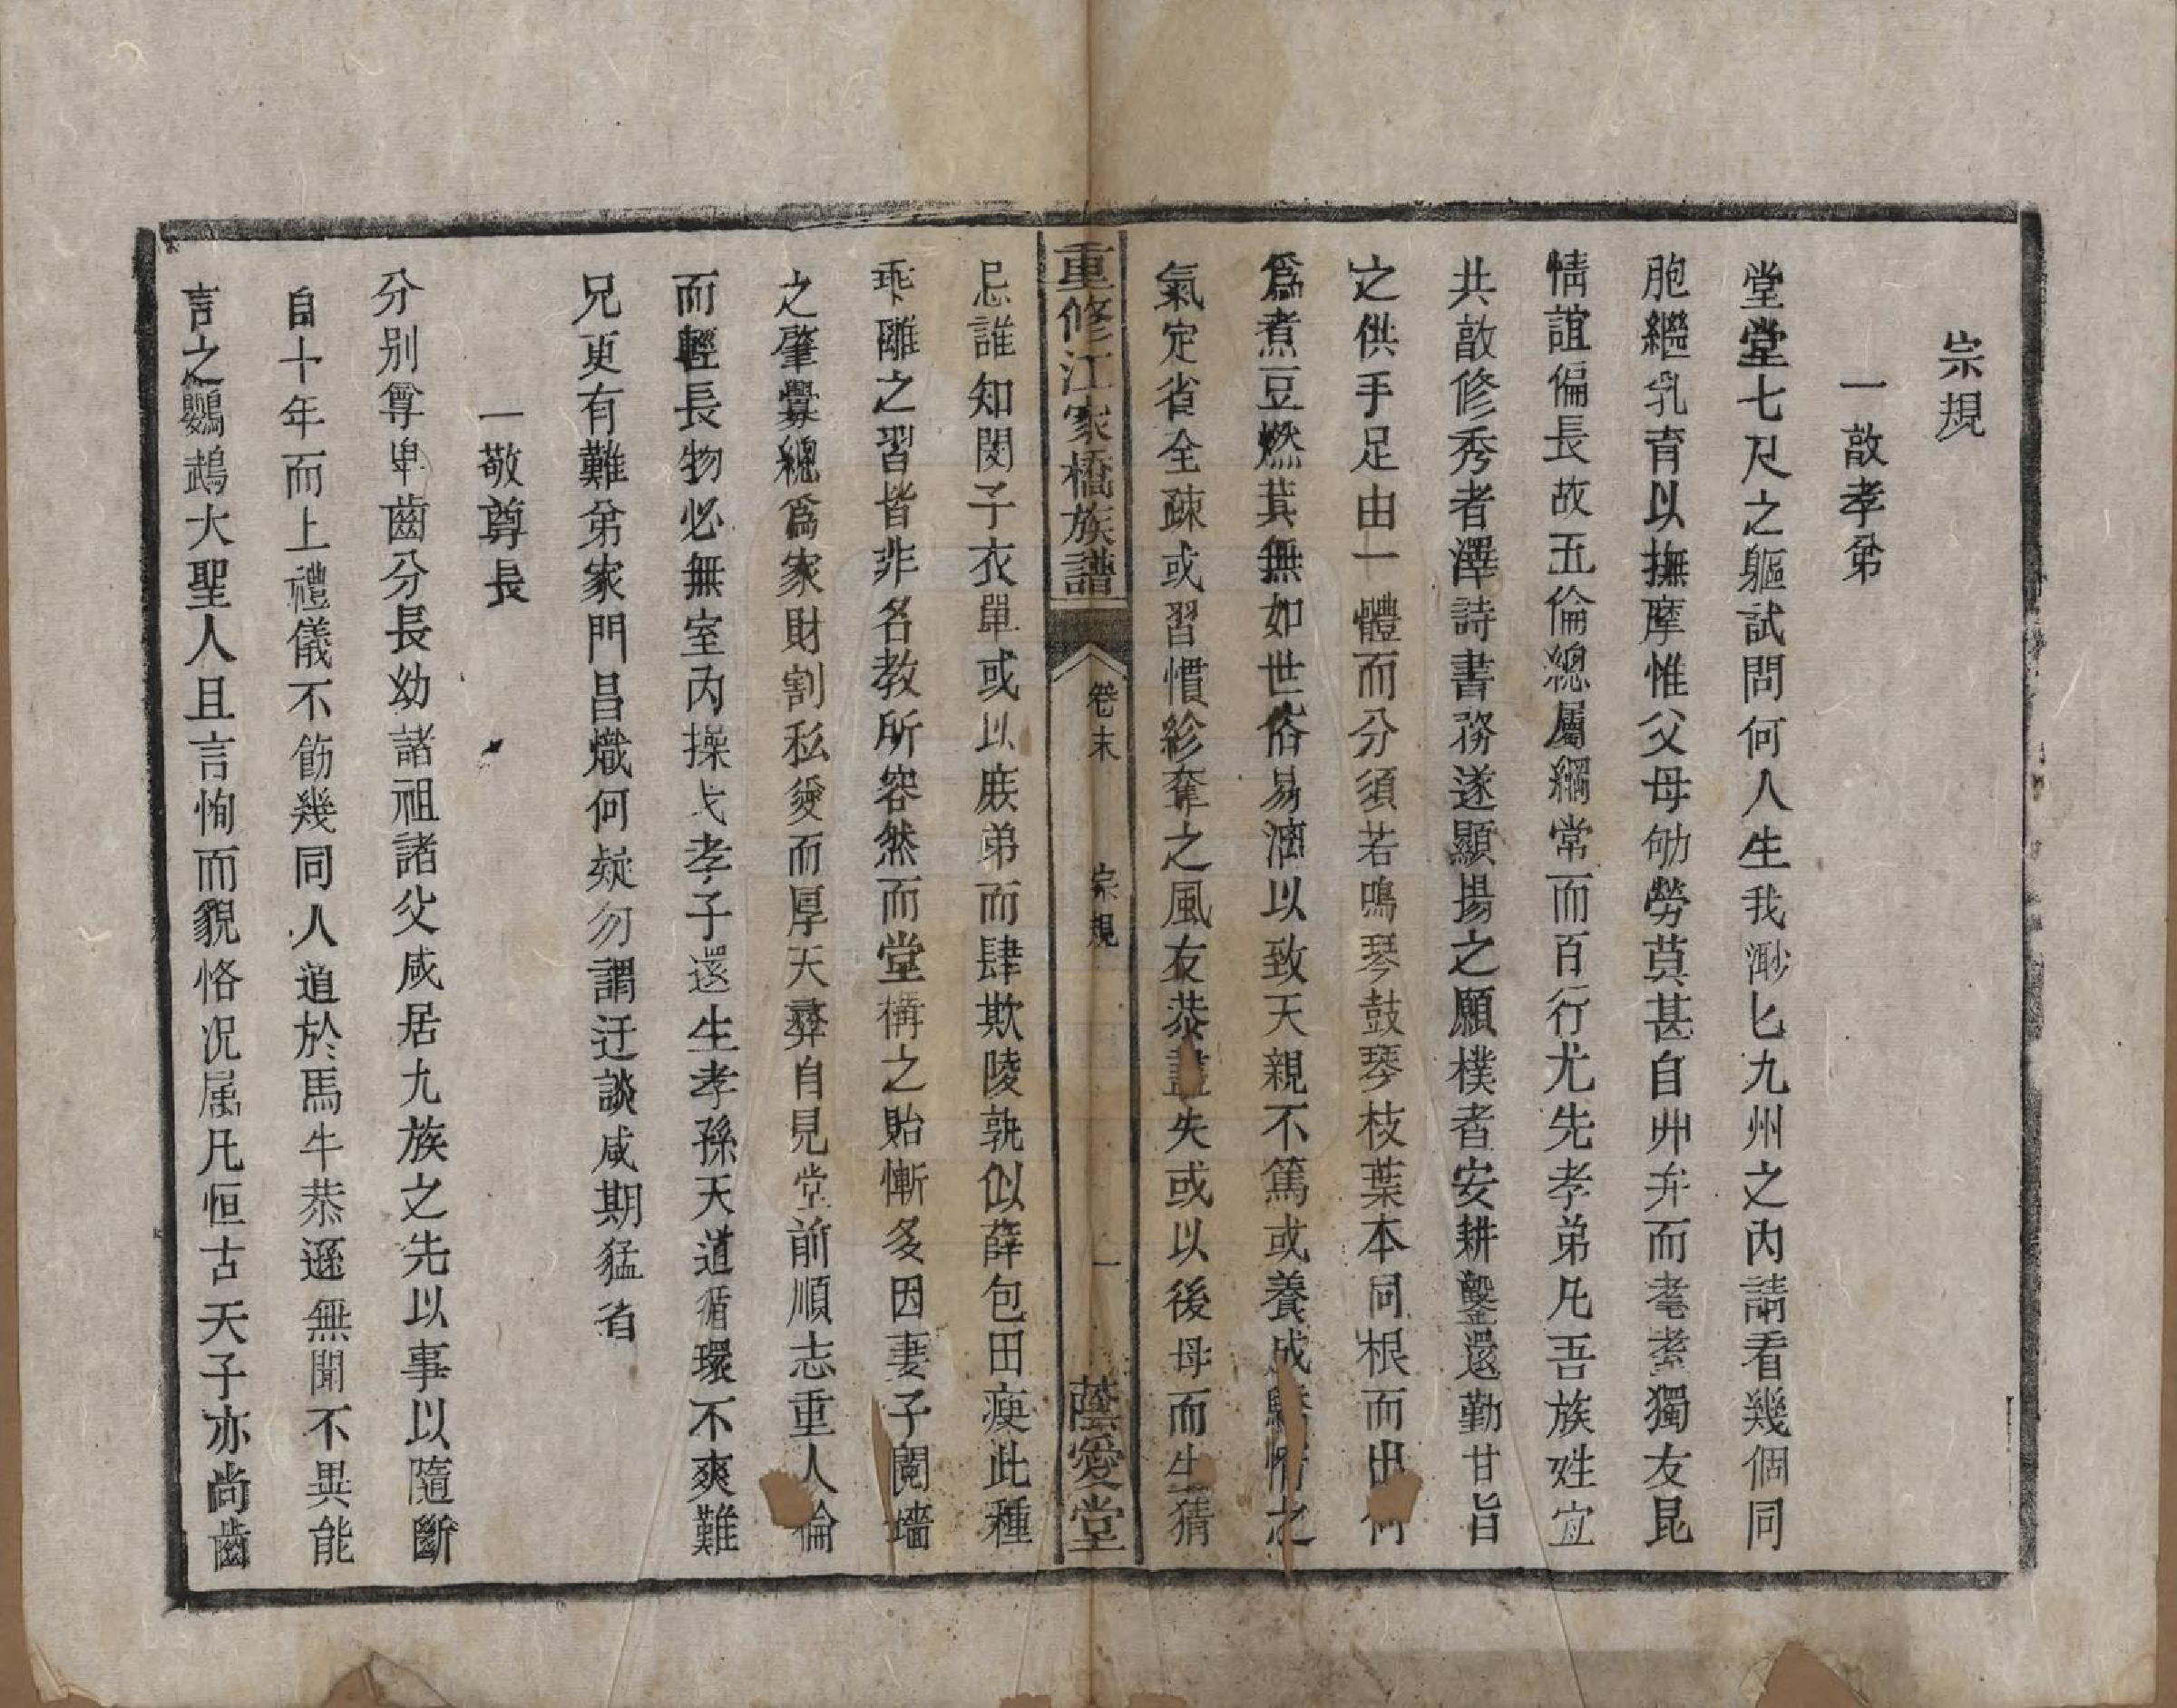 宗規
一敨孝弟
堂堂七尺之軀試問何人生我渺匕九州之內請看幾個同
胞繼乳育以撫摩惟父母劬勞莫甚自丱弁而耄耋獨友昆
情誼偏長故五倫總屬綱常而百行尤先孝弟凡吾族姓宜
共敨修秀者澤詩書務遂顯揚之願樸者安耕鑿還勤甘旨
之供手足由一體而分須若鳴琴鼓琴枝葉本同根而出何
爲煮豆燃萁無如世俗易漓以致天親不篤或養成驕惰之
氣定省全疎或習慣紾奪之風友恭盡失或以後母而生猜
重修江家橋族譜
卷末
宗規
一
蔭愛堂
忌誰知閔子衣單或以庶弟而肆欺陵孰似薛包田瘐此種
乖離之習皆非名教所容然而堂構之貽慚多因妻子鬩墻
之肇釁總爲家財割私愛而厚天彝自見堂前順志重人倫
而輕長物必無室內操戈孝子還生孝孫天道循環不爽難
兄更有難弟家門昌熾何疑勿謂迂談咸期猛省
一敬尊長
分别尊卑齒分長幼諸祖諸父咸居九族之先以事以隨斷
自十年而上禮儀不飭幾同人道於馬牛恭遜無聞不異能
言之鸚鵡大聖人且言恂而貌恪况属凡恒古天子亦尚齒